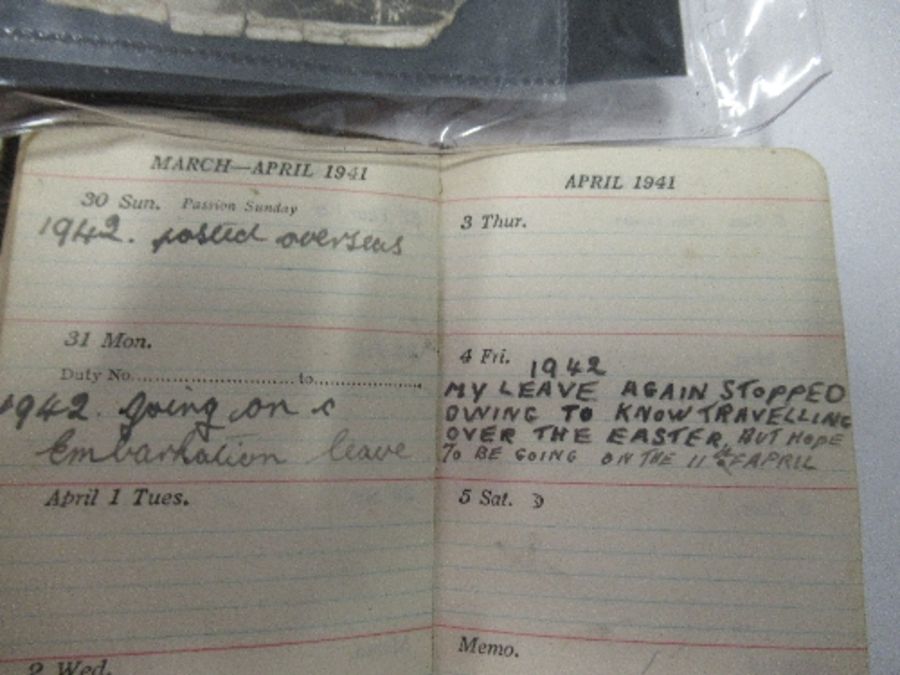 MARCH—APRIL 1941
30 Sun. Passion Sunday
1942. posted overseas
31 Mon.
Duty No. to
1942. going on
Embarkation leave
April 1 Tues.
2 Wed.
APRIL 1941
3 Thur.
4 Fri. 1942
MY LEAVE AGAIN STOPPED
OWING TO KNOW TRAVELLING
OVER THE EASTER, BUT HOPE
TO BE GOING ON THE 11th OF APRIL
5 Sat.
Memo.